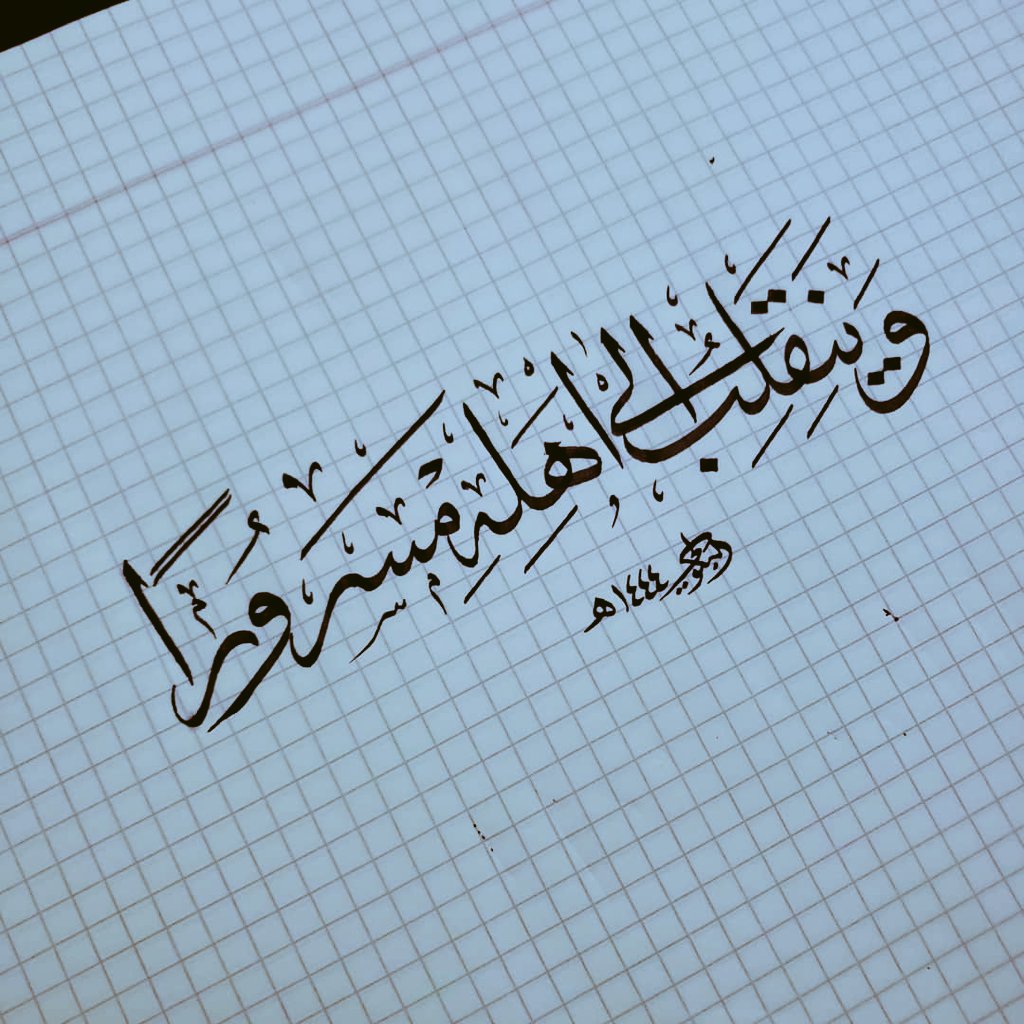 وَيَنقَلِبُ إِلَىٰ أَهْلِهِ مَسْرُورًا
١٤٤٤هـ